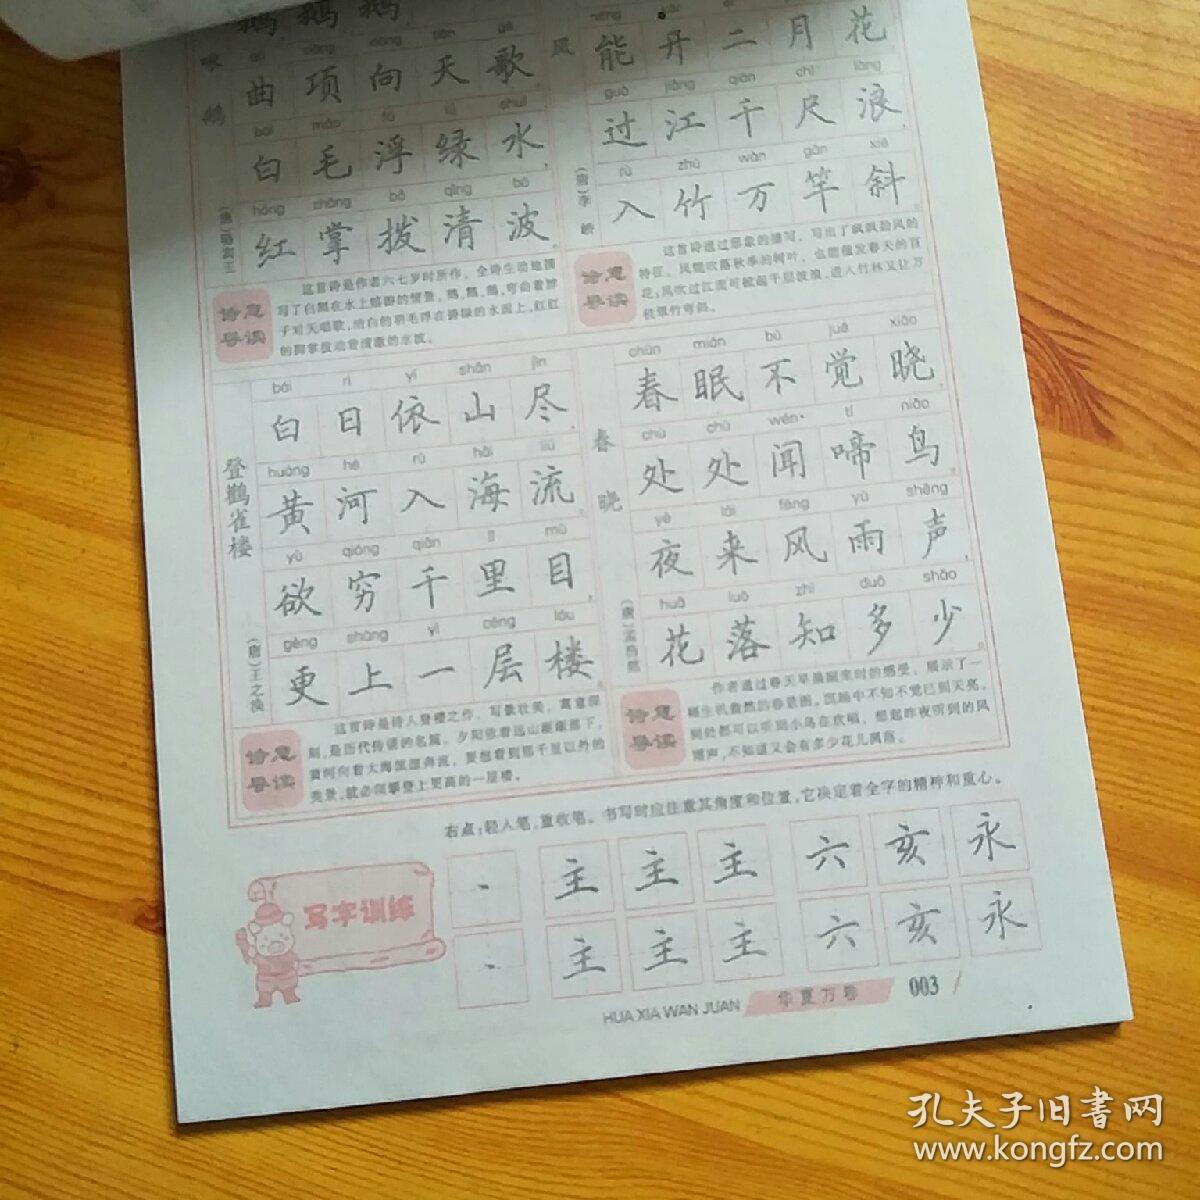 鹅 鹅 鹅
qū xiàng xiàng tiān gē
曲项向天歌
bái máo fú lǜ shuǐ
白毛浮绿水，
hóng zhǎng bō qīng bō
红掌拨清波。
咏鹅
（唐）骆宾王
诗意导读
这首诗是作者六七岁时所作，全诗生动地描
写了白鹅在水上嬉游的情景。鹅，鹅，鹅，弯曲着脖
子对天唱歌，洁白的羽毛浮在碧绿的水面上，红红
的脚掌拨动着清澈的水波。
风
能开二月花
guò jiāng qiān chǐ làng
过江千尺浪，
rù zhú wàn gān xié
入竹万竿斜。
（唐）李峤
诗意导读
这首诗通过形象的描写，写出了飒飒劲风的
特征。风能吹落秋季的树叶，也能催发春天的百
花；风吹过江面可掀起千层波浪，进入竹林又让万
枝翠竹弯斜。
登鹳雀楼
（唐）王之涣
bái rì yī shān jìn
白日依山尽，
huáng hé rù hǎi liú
黄河入海流。
yù qióng qiān lǐ mù
欲穷千里目，
gèng shàng yì céng lóu
更上一层楼。
诗意导读
这首诗是诗人登楼之作，写景壮美，寓意深
刻，是历代传诵的名篇。夕阳依着远山渐渐落下，
黄河向着大海滚滚奔流，要想看到那千里以外的
美景，就必须攀登上更高的一层楼。
春晓
（唐）孟浩然
chūn mián bù jué xiǎo
春眠不觉晓，
chù chù wén tí niǎo
处处闻啼鸟。
yè lái fēng yǔ shēng
夜来风雨声，
huā luò zhī duō shǎo
花落知多少。
诗意导读
作者通过春天早晨醒来时的感受，展示了一
幅生机盎然的春景图。沉睡中不知不觉已到天亮，
到处都可以听到小鸟在欢唱，想起昨夜听到的风
雨声，不知道又会有多少花儿凋落。
右点：轻入笔，重收笔。书写时应注意其角度和位置，它决定着全字的精神和重心。
写字训练
丶 主 主 主 六 亥 永
丶 主 主 主 六 亥 永
HUA XIA WAN JUAN 华夏万卷 003
孔夫子旧書网
www.kongfz.com